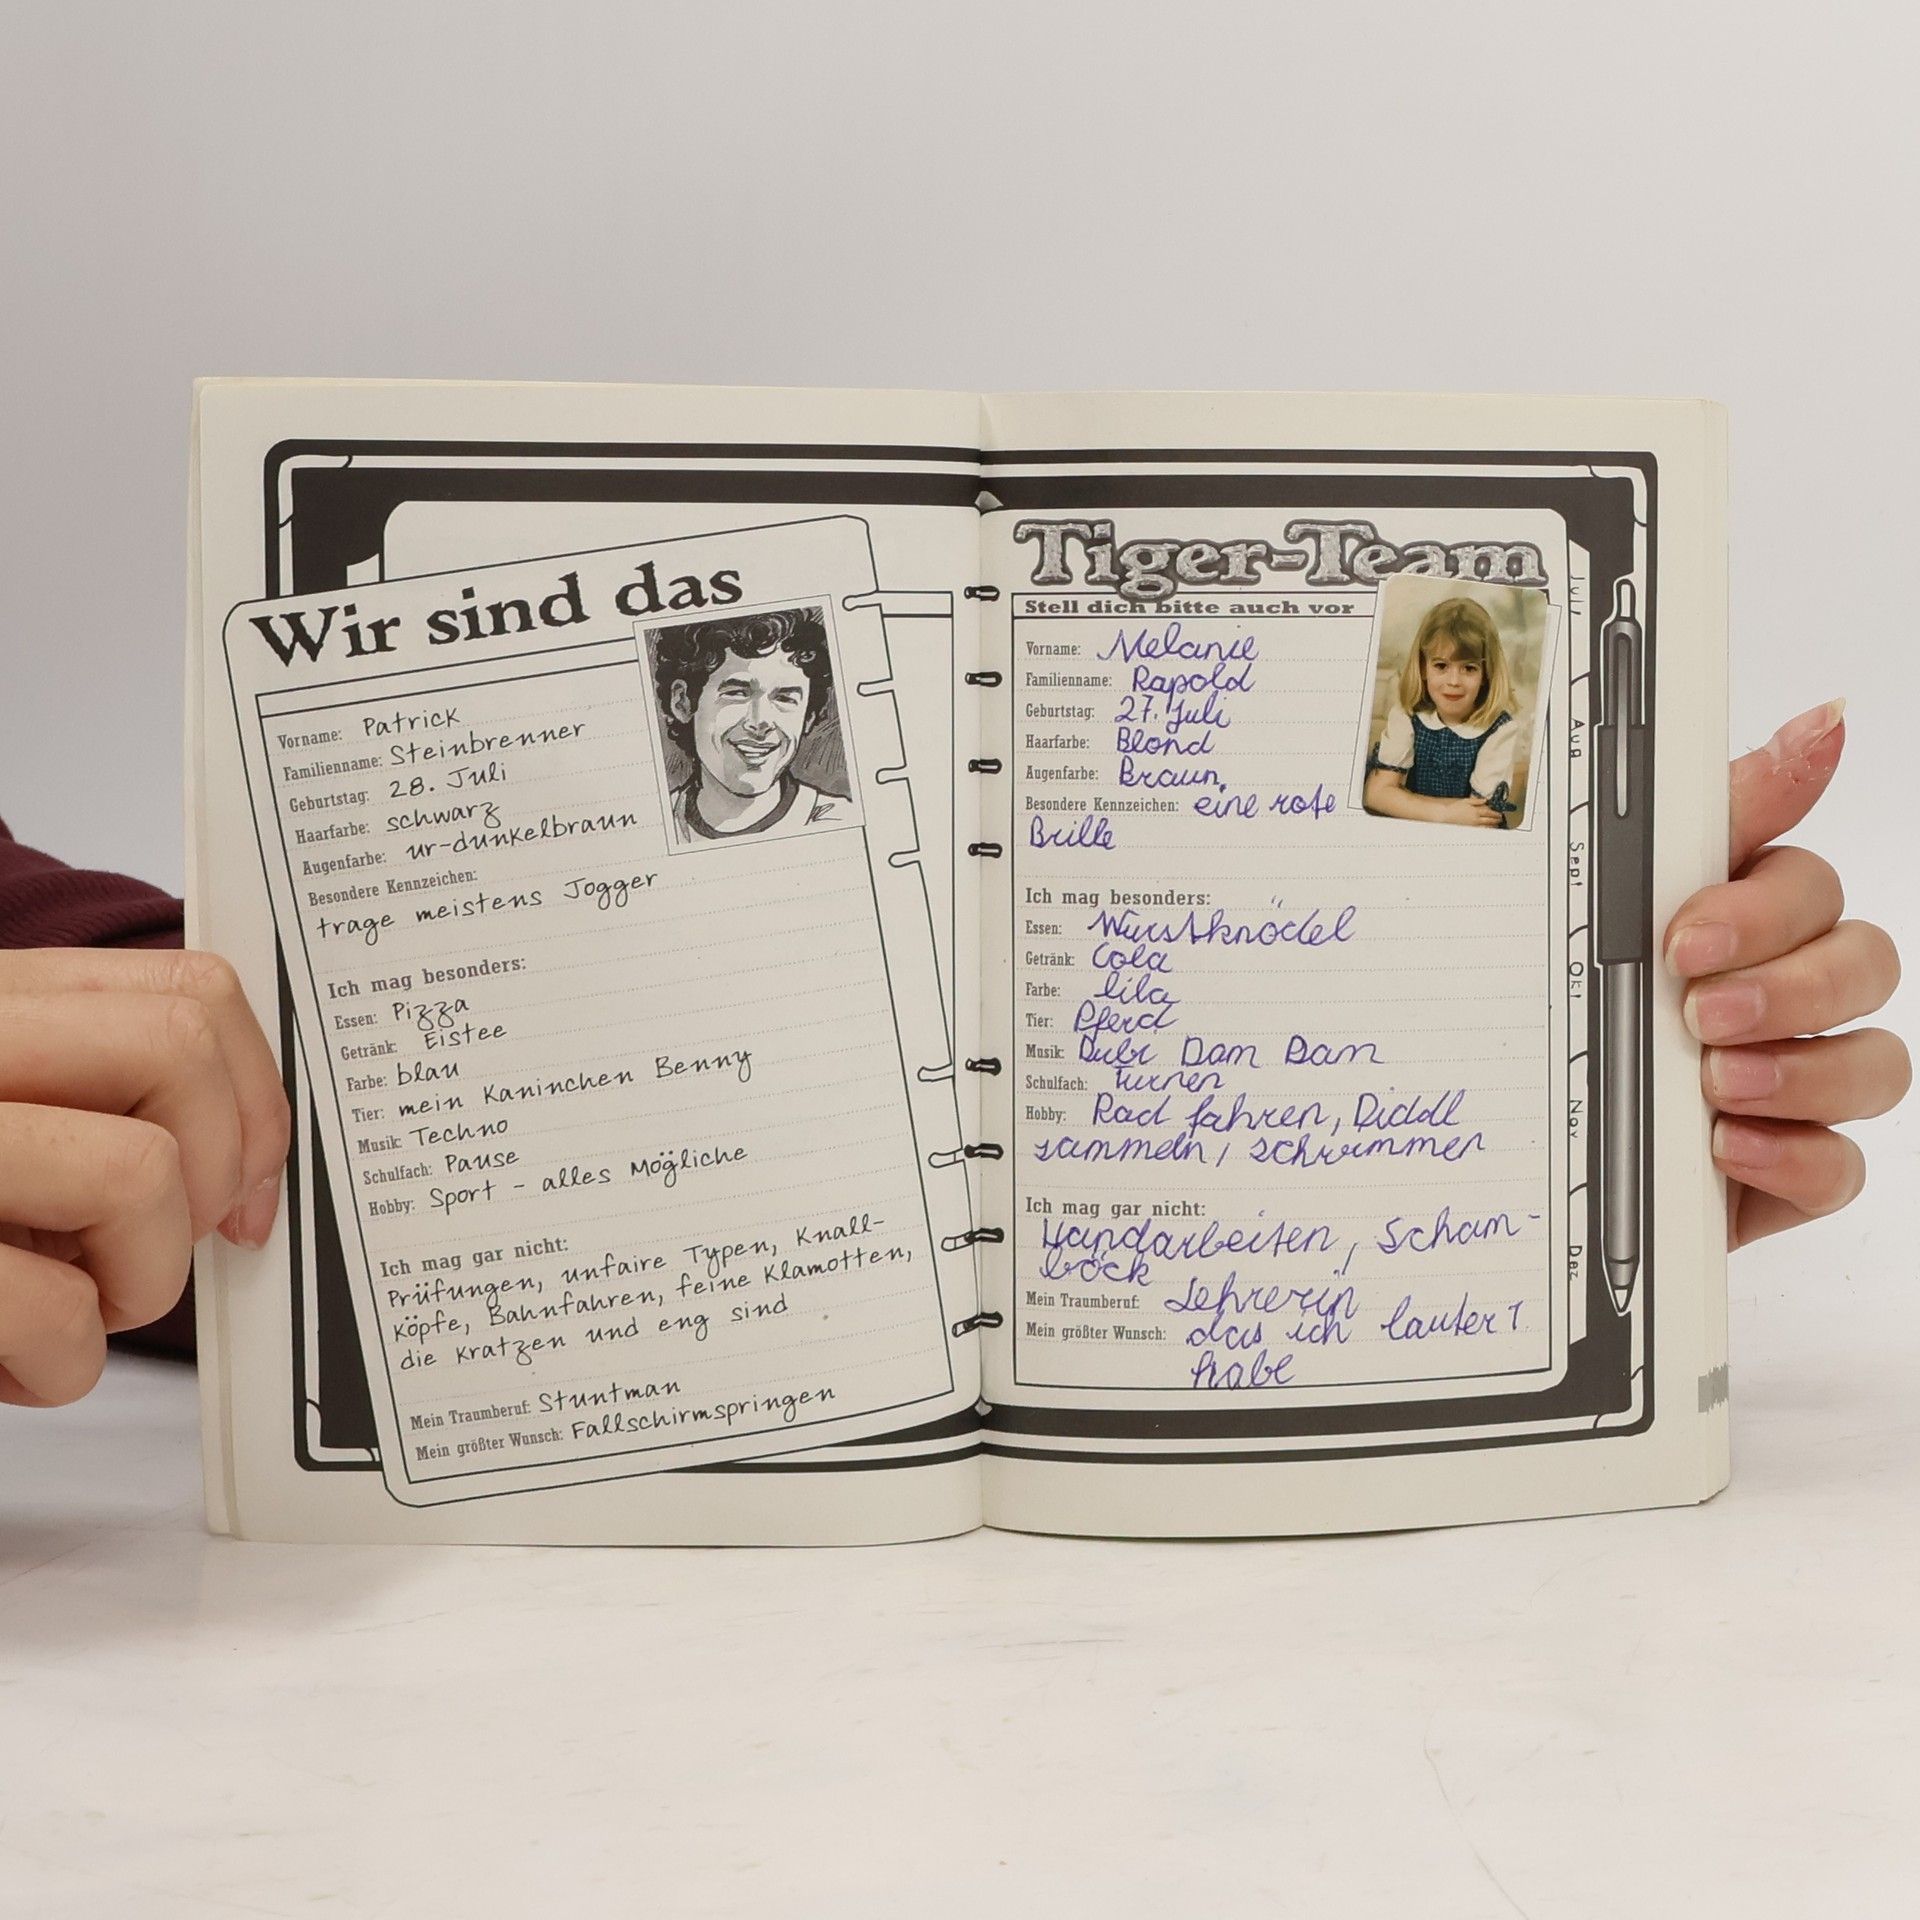 Wir sind das
Vorname: Patrick
Familienname: Steinbrenner
Geburtstag: 28. Juli
Haarfarbe: schwarz
Augenfarbe: ur-dunkelbraun
Besondere Kennzeichen:
trage meistens Jogger
Ich mag besonders:
Essen: Pizza
Getränk: Eistee
Farbe: blau
Tier: mein Kaninchen Benny
Musik: Techno
Schulfach: Pause
Hobby: Sport - alles Mögliche
Ich mag gar nicht:
Prüfungen, unfaire Typen, Knall-
köpfe, Bahnfahren, feine Klamotten,
die kratzen und eng sind
Mein Traumberuf: Stuntman
Mein größter Wunsch: Fallschirmspringen
Tiger-Team
Stell dich bitte auch vor
Vorname: Melanie
Familienname: Rapold
Geburtstag: 27. Juli
Haarfarbe: Blond
Augenfarbe: Braun
Besondere Kennzeichen: eine rote
Brille
Ich mag besonders:
Essen: Wurstknödel
Getränk: Cola
Farbe: lila
Tier: Pferd
Musik: Dubi Dam Dam
Schulfach: Turnen
Hobby: Rad fahren, Diddl
sammeln, schwimmen
Ich mag gar nicht:
Handarbeiten, Scham-
böck
Mein Traumberuf: Lehrerin
Mein größter Wunsch: das ich lauter 1
habe
July
Aug
Sept
Okt
Nov
Dez